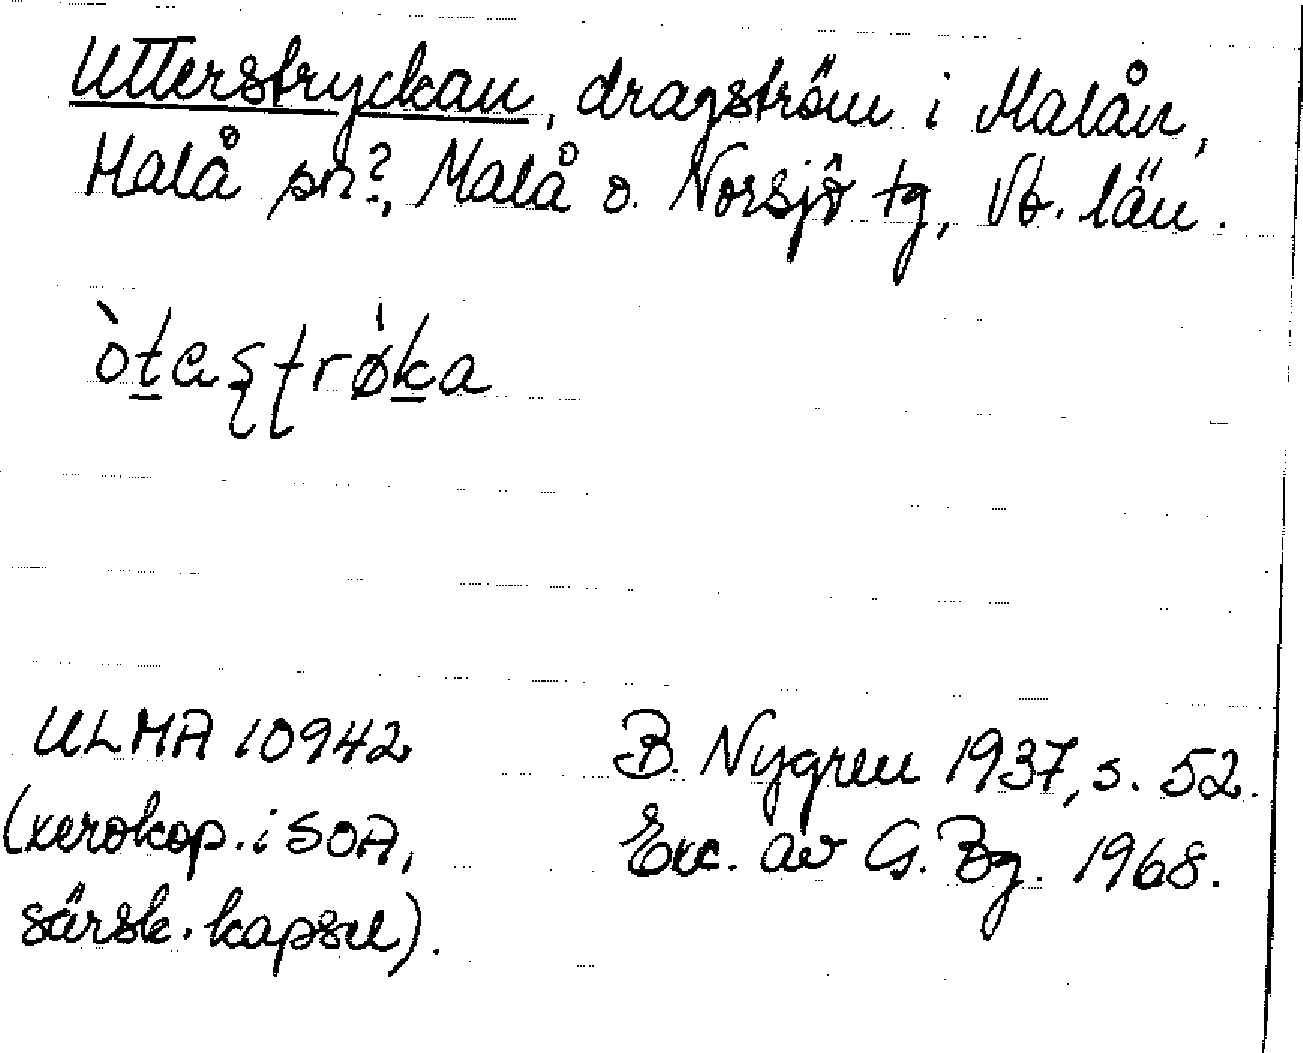 Utterstryckan, dragström i Malån,
Malå sn?, Malå o. Norsjö tg, Vb. län.
òtaʂʈrø̀ka
ULMA 10942
(xerokop. i SOA,
särsk. kapsel).
B. Nygren 1937, s. 52.
Exc. av G. Bg. 1968.